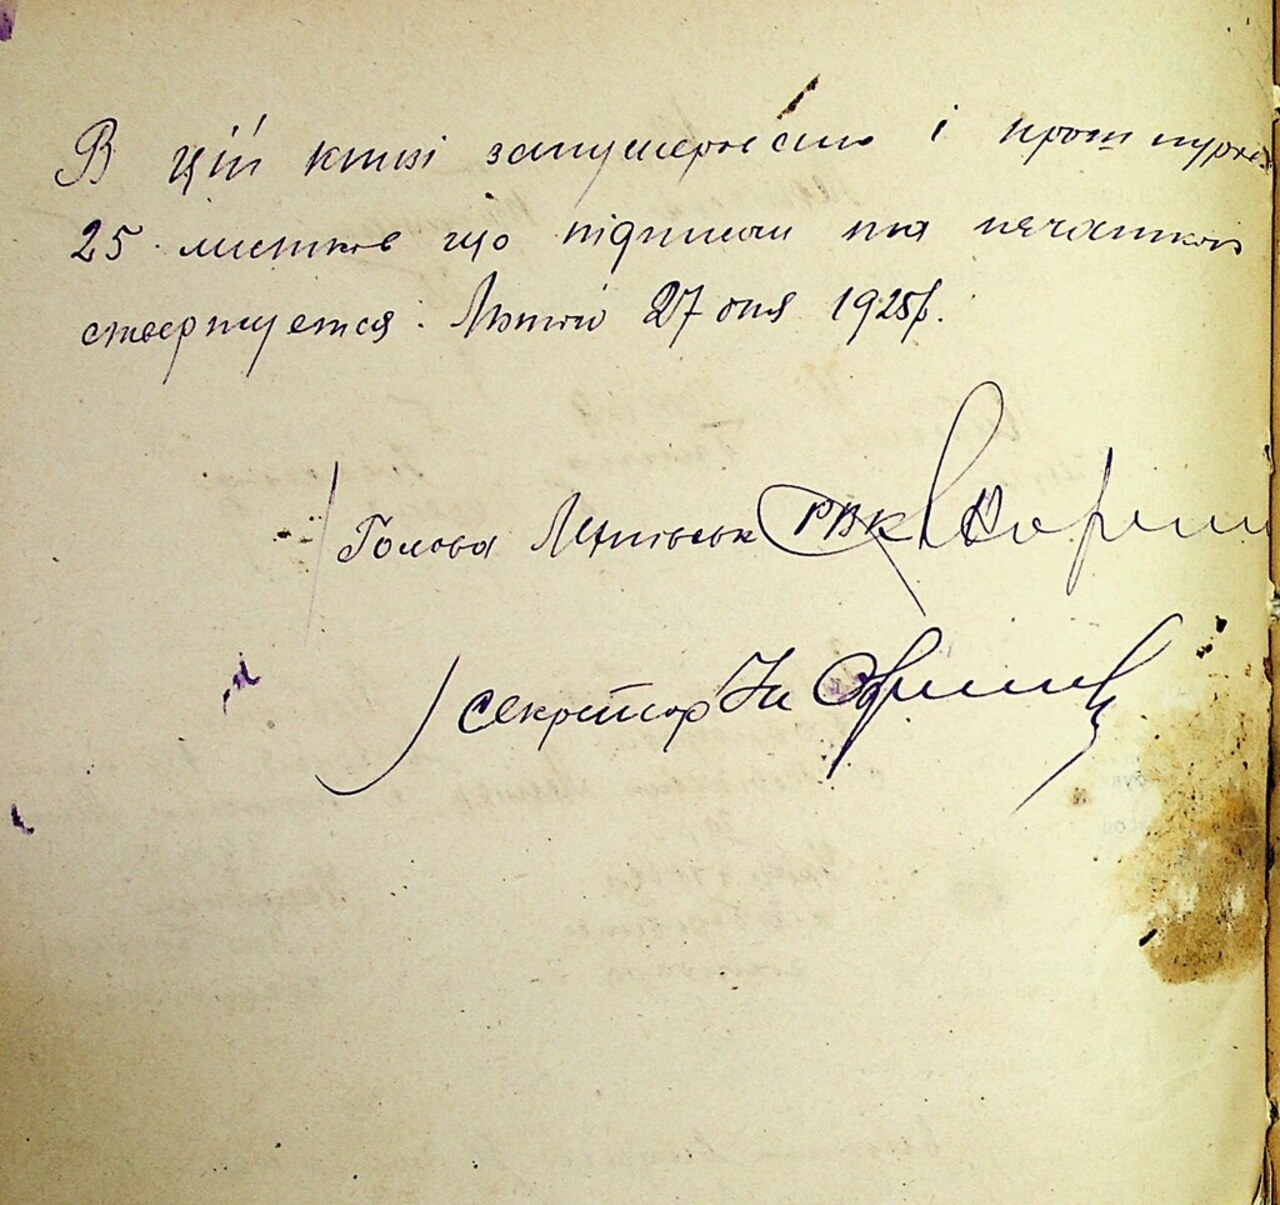 В цій книзі занумеровано і прошнуров
25 листков що підписом та печаткой
ствержуется. Лютий 27 дня 1925р.
Голова Летичівськ РВК
Секретар